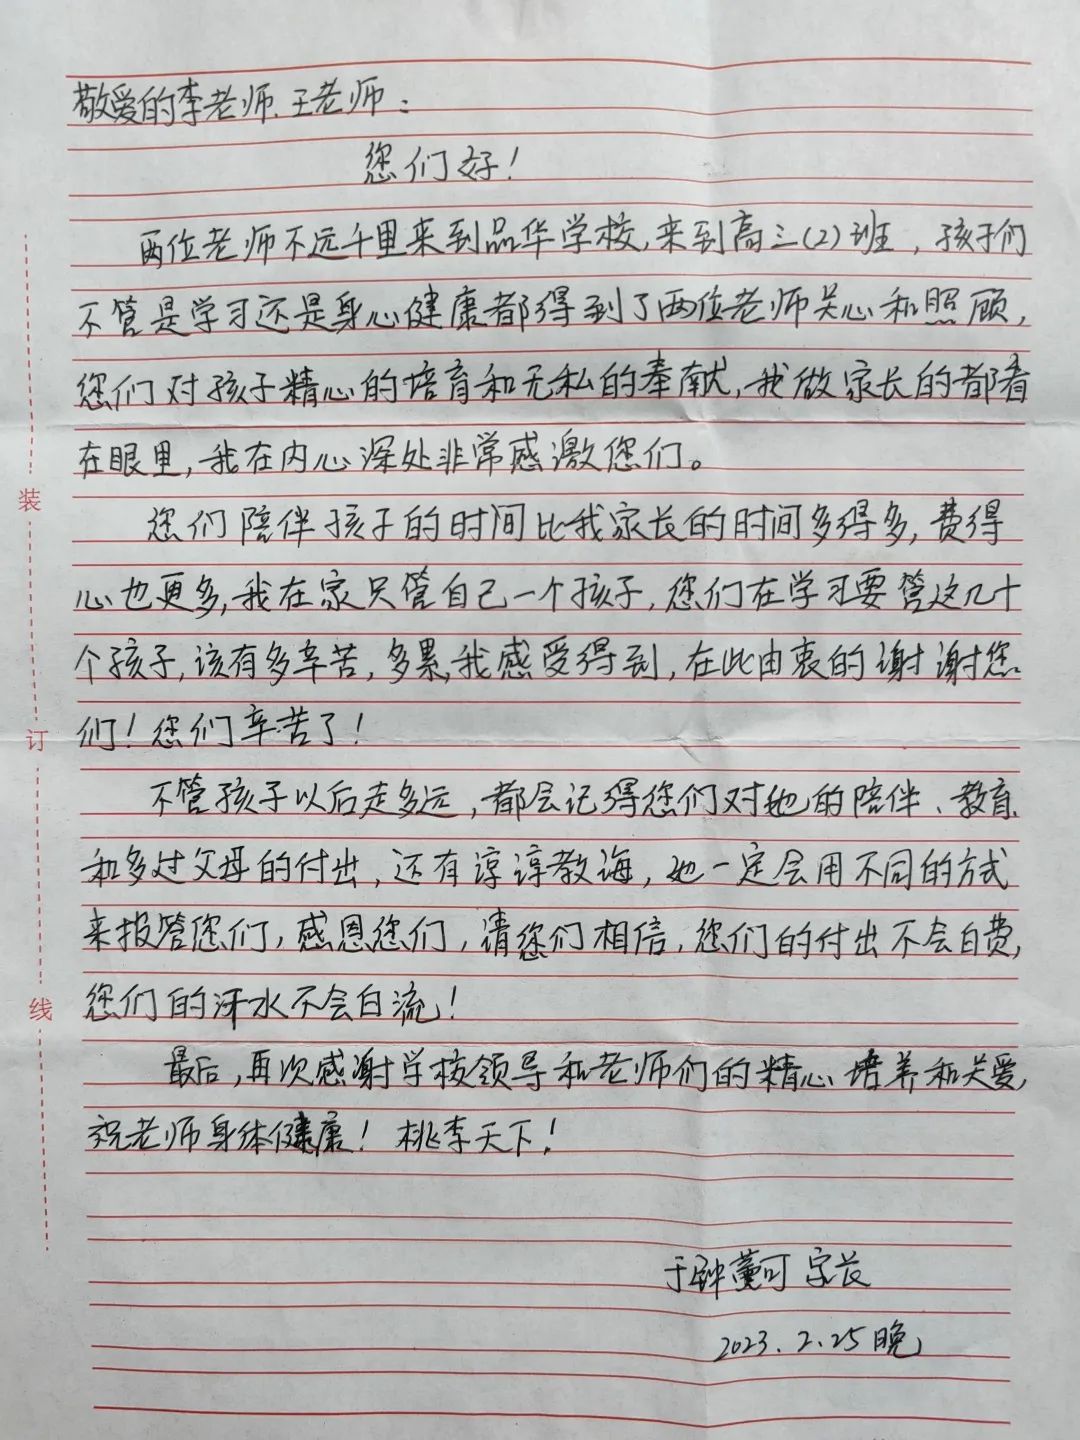 敬爱的李老师、王老师:
您们好!
两位老师不远千里来到品华学校,来到高三(2)班,孩子们
不管是学习还是身心健康都得到了两位老师关心和照顾,
您们对孩子精心的培育和无私的奉献,我做家长的都看
在眼里,我在内心深处非常感激您们。
您们陪伴孩子的时间比我家长的时间多得多,费得
心也更多,我在家只管自己一个孩子,您们在学习要管这几十
个孩子,该有多辛苦,多累,我感受得到,在此由衷的谢谢您
们!您们辛苦了!
不管孩子以后走多远,都会记得您们对她的陪伴、教育
和多过父母的付出,还有谆谆教诲,她一定会用不同的方式
来报答您们,感恩您们,请您们相信,您们的付出不会白费,
您们的汗水不会白流!
最后,再次感谢学校领导和老师们的精心培养和关爱,
祝老师身体健康!桃李天下!
家长
2023.2.25晚
装
订
线